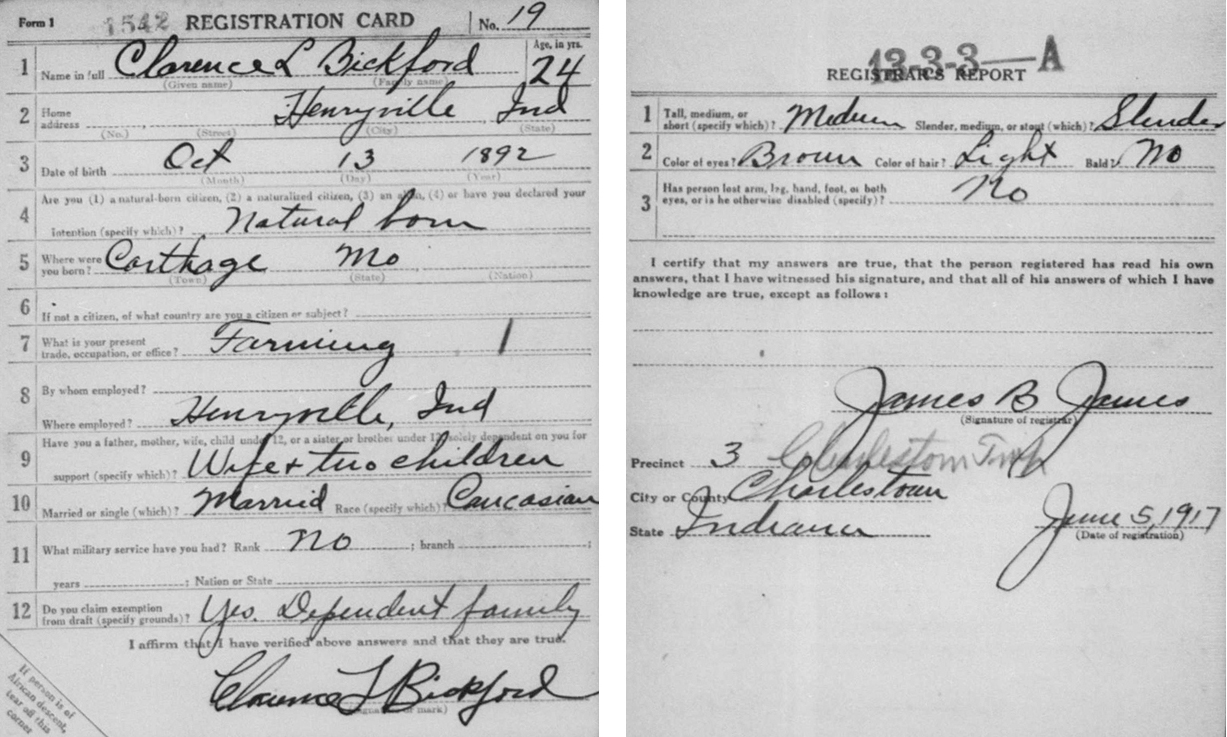 Form 1 1542 REGISTRATION CARD No. 19
1 Name in full Clarence L Bickford Age, in yrs. 24
(Given name) (Family name)
2 Home address Henryville Ind
(No.) (Street) (City) (State)
3 Date of birth Oct 13 1892
(Month) (Day) (Year)
4 Are you (1) a natural-born citizen, (2) a naturalized citizen, (3) an alien, (4) or have you declared your
intention (specify which)? Natural born
5 Where were you born? Carthage Mo
(Town) (State) (Nation)
6 If not a citizen, of what country are you a citizen or subject?
7 What is your present
trade, occupation, or office? Farming 1
8 By whom employed?
Where employed? Henryville, Ind
9 Have you a father, mother, wife, child under 12, or a sister or brother under 12, solely dependent on you for
support (specify which)? Wife + two children
10 Married or single (which)? Married Race (specify which)? Caucasian
11 What military service have you had? Rank No ; branch ;
years ; Nation or State
12 Do you claim exemption
from draft (specify grounds)? Yes. Dependent family
I affirm that I have verified above answers and that they are true.
Clarence L Bickford
(Signature or mark)
If person is of
African descent,
tear off this
corner
13-3-3-A
REGISTRAR'S REPORT
1 Tall, medium, or
short (specify which)? Medium Slender, medium, or stout (which)? Slender
2 Color of eyes? Brown Color of hair? Light Bald? No
3 Has person lost arm, leg, hand, foot, or both
eyes, or is he otherwise disabled (specify)? No
I certify that my answers are true, that the person registered has read his own
answers, that I have witnessed his signature, and that all of his answers of which I have
knowledge are true, except as follows:
James B James
(Signature of registrar)
Precinct 3 Charlestown Twp
City or County Charlestown
State Indiana June 5, 1917
(Date of registration)